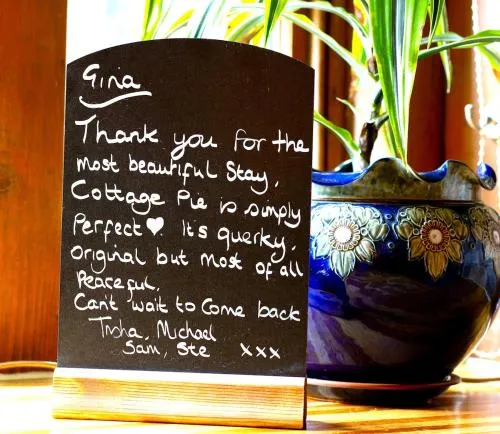 Gina
Thank you for the
most beautiful Stay.
Cottage Pie is simply
Perfect♥ It's querky,
Original but most of all
Peaceful.
Can't wait to Come back
Trisha, Michael
Sam, Ste xxx